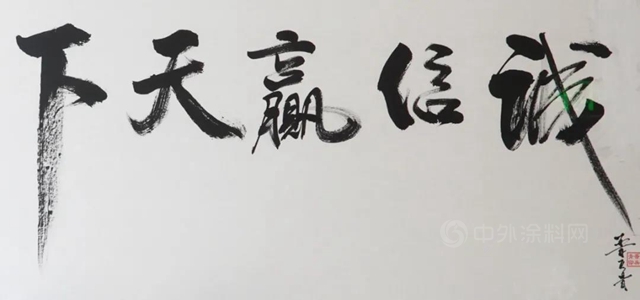 诚信赢天下
中外涂料网